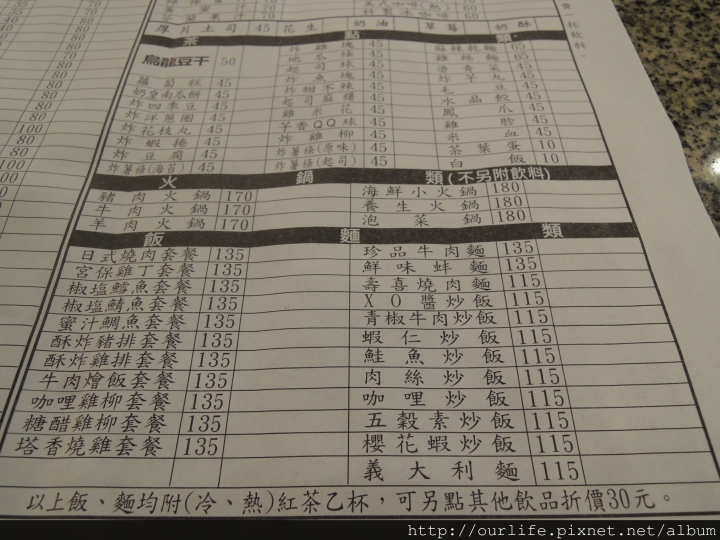 厚片土司 45 花生 奶油 草莓 奶酥
茶 點 類
烏龍豆干 50 炸雞塊 45 麻辣乾麵 65
地瓜條 45 雞絲麵 55
蘿蔔糕 45 起司球 45
奶皇南瓜餅 45 炸魚塊 45 炸芋丸 45
炸四季豆 45 炸甜不辣 45 毛豆 45
炸洋蔥圈 45 起司麻糬 45 水晶餃 45
炸花枝丸 45 雞米花 45 鳳爪 45
炸蝦捲 45 芋香QQ球 45 雞胗 45
炸豆腐 45 炸雞柳 45 米血 45
炸薯條(海苔) 45 炸薯條(原味) 45 茶葉蛋 10
炸薯條(起司) 45 白飯 10
火 鍋 類(不另附飲料)
豬肉火鍋 170 海鮮小火鍋 180
牛肉火鍋 170 養生火鍋 180
羊肉火鍋 170 泡菜鍋 180
飯 麵 類
日式燒肉套餐 135 珍品牛肉麵 135
宮保雞丁套餐 135 鮮味蚌麵 135
椒塩鱈魚套餐 135 壽喜燒肉麵 115
椒塩鯖魚套餐 135 XO醬炒飯 115
蜜汁鯛魚套餐 135 青椒牛肉炒飯 115
酥炸豬排套餐 135 蝦仁炒飯 115
酥炸雞排套餐 135 鮭魚炒飯 115
牛肉燴飯套餐 135 肉絲炒飯 115
咖哩雞柳套餐 135 咖哩炒飯 115
糖醋雞柳套餐 135 五穀素炒飯 115
塔香燒雞套餐 135 櫻花蝦炒飯 115
義大利麵 115
以上飯、麵均附(冷、熱)紅茶乙杯，可另點其他飲品折價30元。
http://ourlife.pixnet.net/album